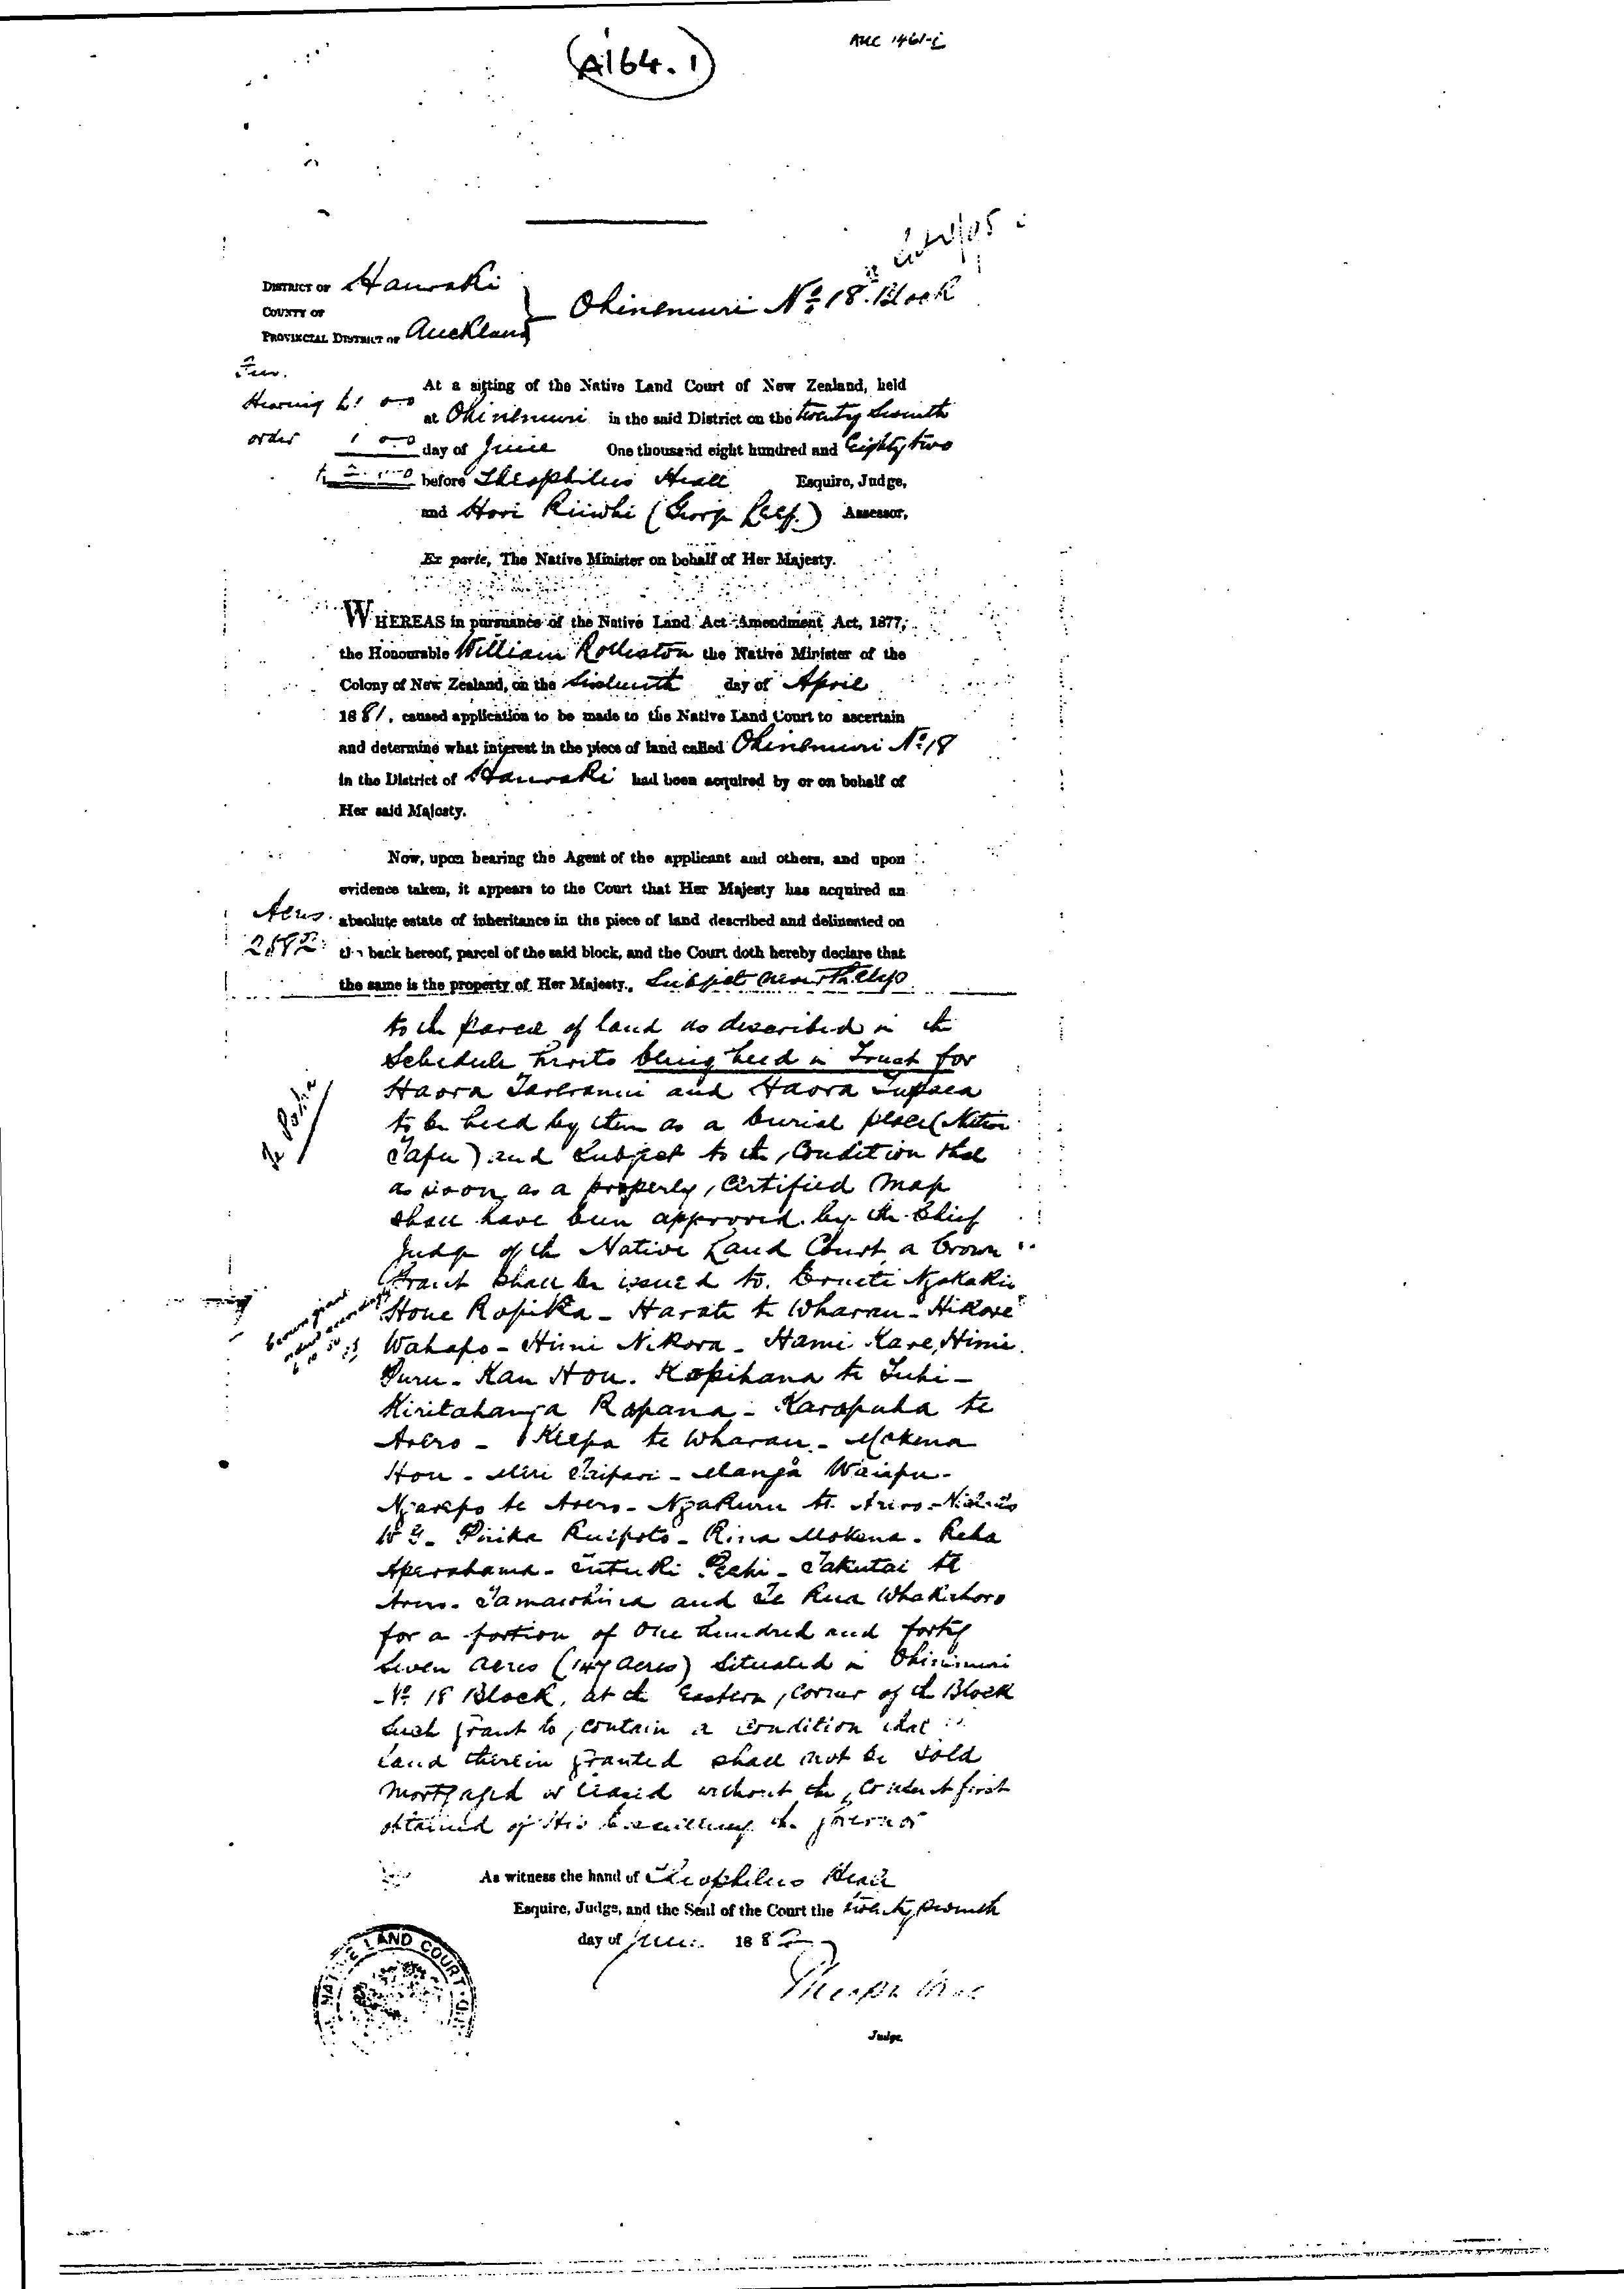 AUC 1461-i
(A164.1)
DISTRICT OF Hauraki
COUNTY OF
PROVINCIAL DISTRICT OF Auckland
Ohinemuri No 18 Block
At a sitting of the Native Land Court of New Zealand, held
Hearing £1 0-0
at Ohinemuri in the said District on the twenty seventh
order 1 0-0
day of June One thousand eight hundred and Eighty two
before Theophilus Heale Esquire, Judge,
and Hori Riiwhi (George ) Assessor,
Ex parte, The Native Minister on behalf of Her Majesty.
WHEREAS in pursuance of the Native Land Act Amendment Act, 1877,
the Honourable William Rolleston the Native Minister of the
Colony of New Zealand, on the day of April
1881, caused application to be made to the Native Land Court to ascertain
and determine what interest in the piece of land called Ohinemuri No 18
in the District of Hauraki had been acquired by or on behalf of
Her said Majesty.
Now, upon hearing the Agent of the applicant and others, and upon
evidence taken, it appears to the Court that Her Majesty has acquired an
Acres
absolute estate of inheritance in the piece of land described and delineated on
the back hereof, parcel of the said block, and the Court doth hereby declare that
the same is the property of Her Majesty, Subject nevertheless
to the parcel of land as described in the
Schedule hereto being held in Trust for
Haora Tareranui and Haora Tupaea
to be held by them as a burial place (
Tapu) and subject to the Condition that
as soon as a properly Certified Map
shall have been approved by the Chief
Judge of the Native Land Court a Crown
Grant shall be issued to Erueti Ngakakii
Hone Ropiha - Harata te Wharau - Hikore
Wahapo - Hiini Nikora - Hami Kare, Himi
Puru - Kau Hou. Kopihana te Tuhi -
Kiritahanga Rapana - Karapuha te
Arero - Keepa te Wharau - Mokena
Hou - Miri Taipari - Manga Waiapu -
Ngarepo te Arero - Ngakuru te Arero -
Piiika Ruipoto - Rina Mokena - Reha
Aperahama - Tutuki - Takutai te
Arero - and Te Rua Whakahoro
for a portion of One hundred and forty
Seven acres (147 acres) situated in Ohinemuri
No 18 Block, at the Eastern Corner of the Block
Such grant to contain a condition that
land therein granted shall not be sold
mortgaged or leased without the Consent first
obtained of His Excellency the Governor
As witness the hand of Theophilus Heale
Esquire, Judge, and the Seal of the Court the twenty seventh
day of June 1882
Judge.
LAND COURT